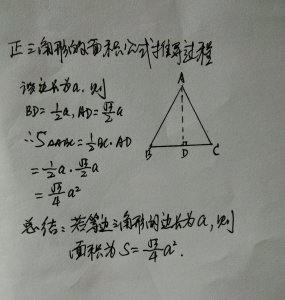 正三角形的面积公式推导过程
设边长为a,则
BD=½a, AD=√3/2 a
∴S△ABC=½BC·AD
=½a·√3/2 a
=√3/4 a²
A
B D C
总结:若等边三角形的边长为a,则
面积为S=√3/4 a².